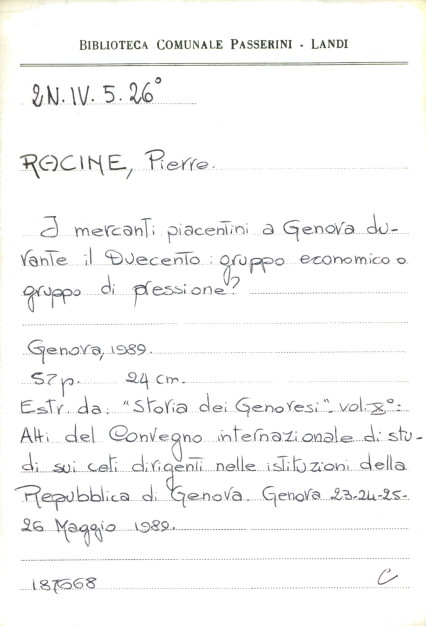 BIBLIOTECA COMUNALE PASSERINI - LANDI
2N.IV.5.26°
RACINE, Pierre.
I mercanti piacentini a Genova du-
rante il Duecento: gruppo economico o
gruppo di pressione?
Genova, 1989.
57 p. 24 cm.
Estr. da: "Storia dei Genovesi". vol. X°:
Atti del Convegno internazionale di stu-
di sui ceti dirigenti nelle istituzioni della
Repubblica di Genova. Genova 23-24-25-
26 Maggio 1989.
C